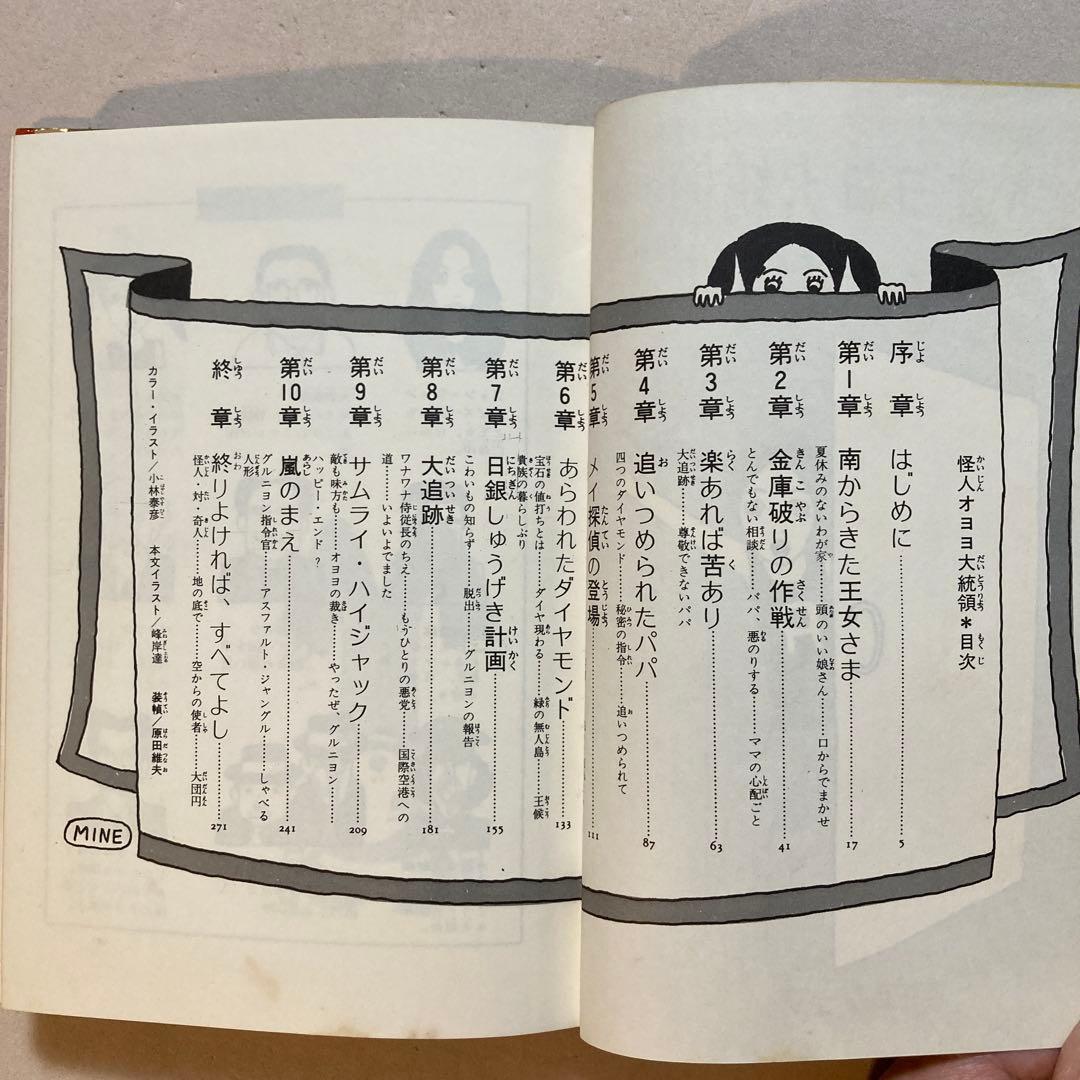 怪人オヨヨ大統領＊目次
序章 はじめに……5
第1章 南からきた王女さま……17
夏休みのないわが家……頭のいい娘さん……口からでまかせ
第2章 金庫破りの作戦……41
とんでもない相談……パパ、悪のりする……ママの心配ごと
第3章 楽あれば苦あり……63
大追跡……尊敬できないパパ
第4章 追いつめられたパパ……87
四つのダイヤモンド……秘密の指令……追いつめられて
第5章 メイ探偵の登場……111
第6章 あらわれたダイヤモンド……133
宝石の値打ちとは……ダイヤ現わる……緑の無人島……王侯
貴族の暮らしぶり
第7章 日銀しゅうげき計画……155
こわいもの知らず……脱出……グルニヨンの報告
第8章 大追跡……181
ワナワナ侍従長のちえ……もうひとりの悪党……国際空港への
道……いよいよでました
第9章 サムライ・ハイジャック……209
敵も味方も……オヨヨの裁き……やったぜ、グルニヨン……
ハッピー・エンド？
第10章 嵐のまえ……241
グルニヨン指令官……アスファルト・ジャングル……しゃべる
人形
終章 終りよければ、すべてよし……271
怪人・対・奇人……地の底で……空からの使者……大団円
カラー・イラスト／小林泰彦 本文イラスト／峰岸達 装幀／原田維夫
MINE